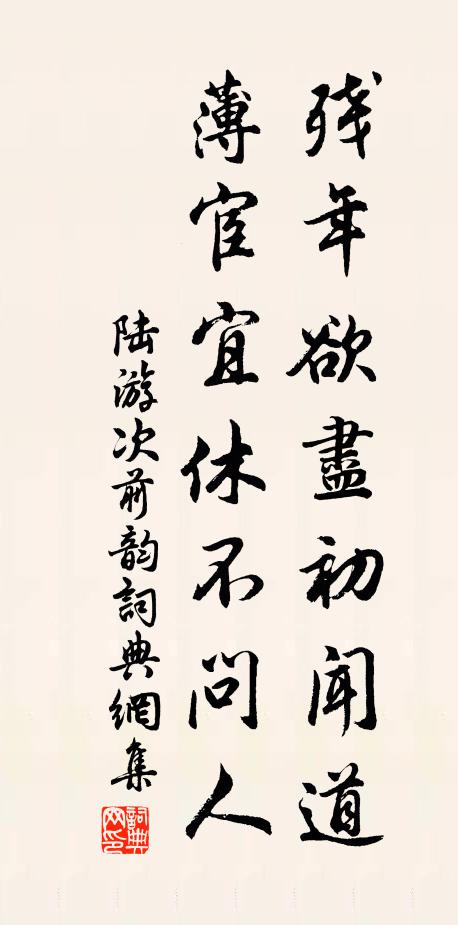 残年欲盡初聞道
薄宦宜休不問人
陸游次前韵詞典網集
詞典網印